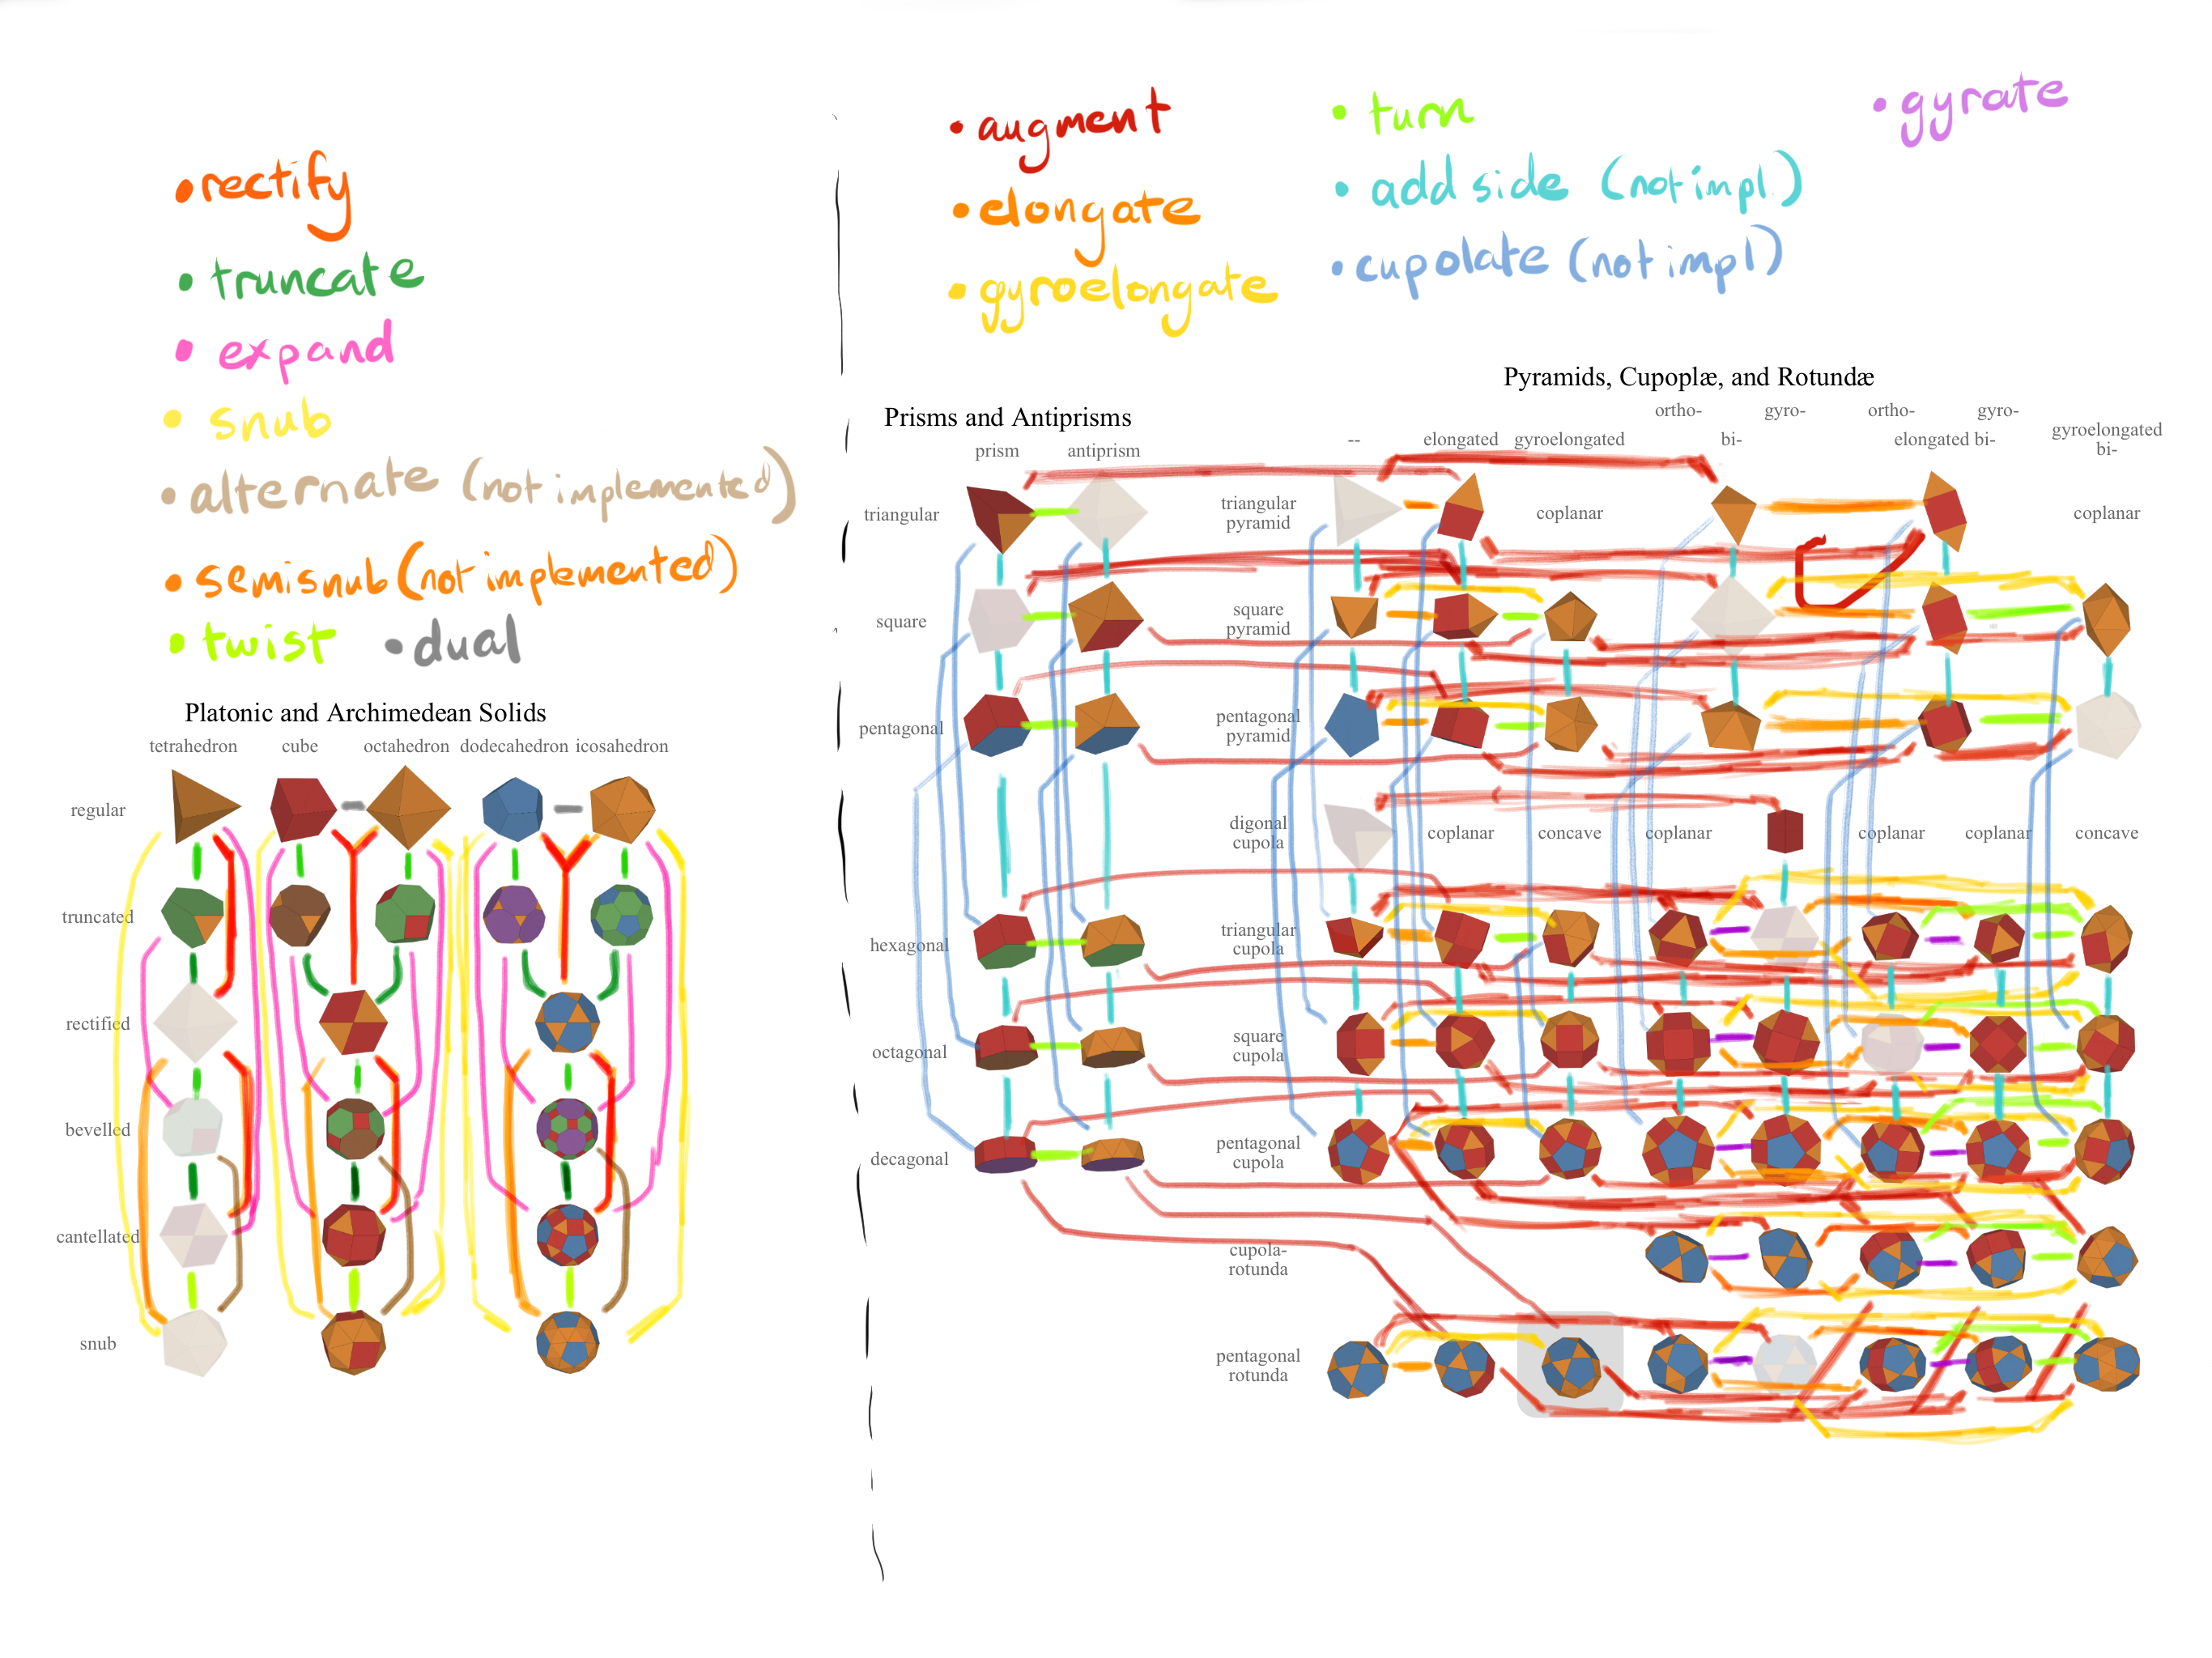 • rectify
• truncate
• expand
• snub
• alternate (not implemented)
• semisnub (not implemented)
• twist • dual
Platonic and Archimedean Solids
tetrahedron cube octahedron dodecahedron icosahedron
regular
truncated
rectified
bevelled
cantellated
snub
• augment
• elongate
• gyroelongate
• turn
• add side (not impl.)
• cupolate (not impl)
• gyrate
Prisms and Antiprisms
prism antiprism
triangular
square
pentagonal
hexagonal
octagonal
decagonal
Pyramids, Cupoplæ, and Rotundæ
ortho- gyro- ortho- gyro-
-- elongated gyroelongated bi- elongated bi- gyroelongated
bi-
triangular
pyramid
coplanar coplanar
square
pyramid
pentagonal
pyramid
digonal
cupola
coplanar concave coplanar coplanar coplanar concave
triangular
cupola
square
cupola
pentagonal
cupola
cupola-
rotunda
pentagonal
rotunda